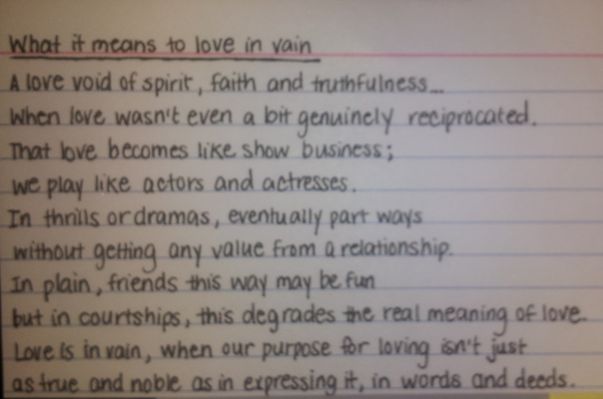 What it means to love in vain
A love void of spirit, faith and truthfulness...
When love wasn't even a bit genuinely reciprocated.
That love becomes like show business;
we play like actors and actresses.
In thrills or dramas, eventually part ways
without getting any value from a relationship.
In plain, friends this way may be fun
but in courtships, this degrades the real meaning of love.
Love is in vain, when our purpose for loving isn't just
as true and noble as in expressing it, in words and deeds.